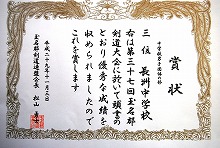 賞状
中学校男子団体の部
三位 長洲中学校
右は第三十七回玉名郡
剣道大会に於いて頭書の
とおり優秀な成績を
収められましたので
これを賞します
平成二十九年十一月三日
玉名郡剣道連盟会長 松山